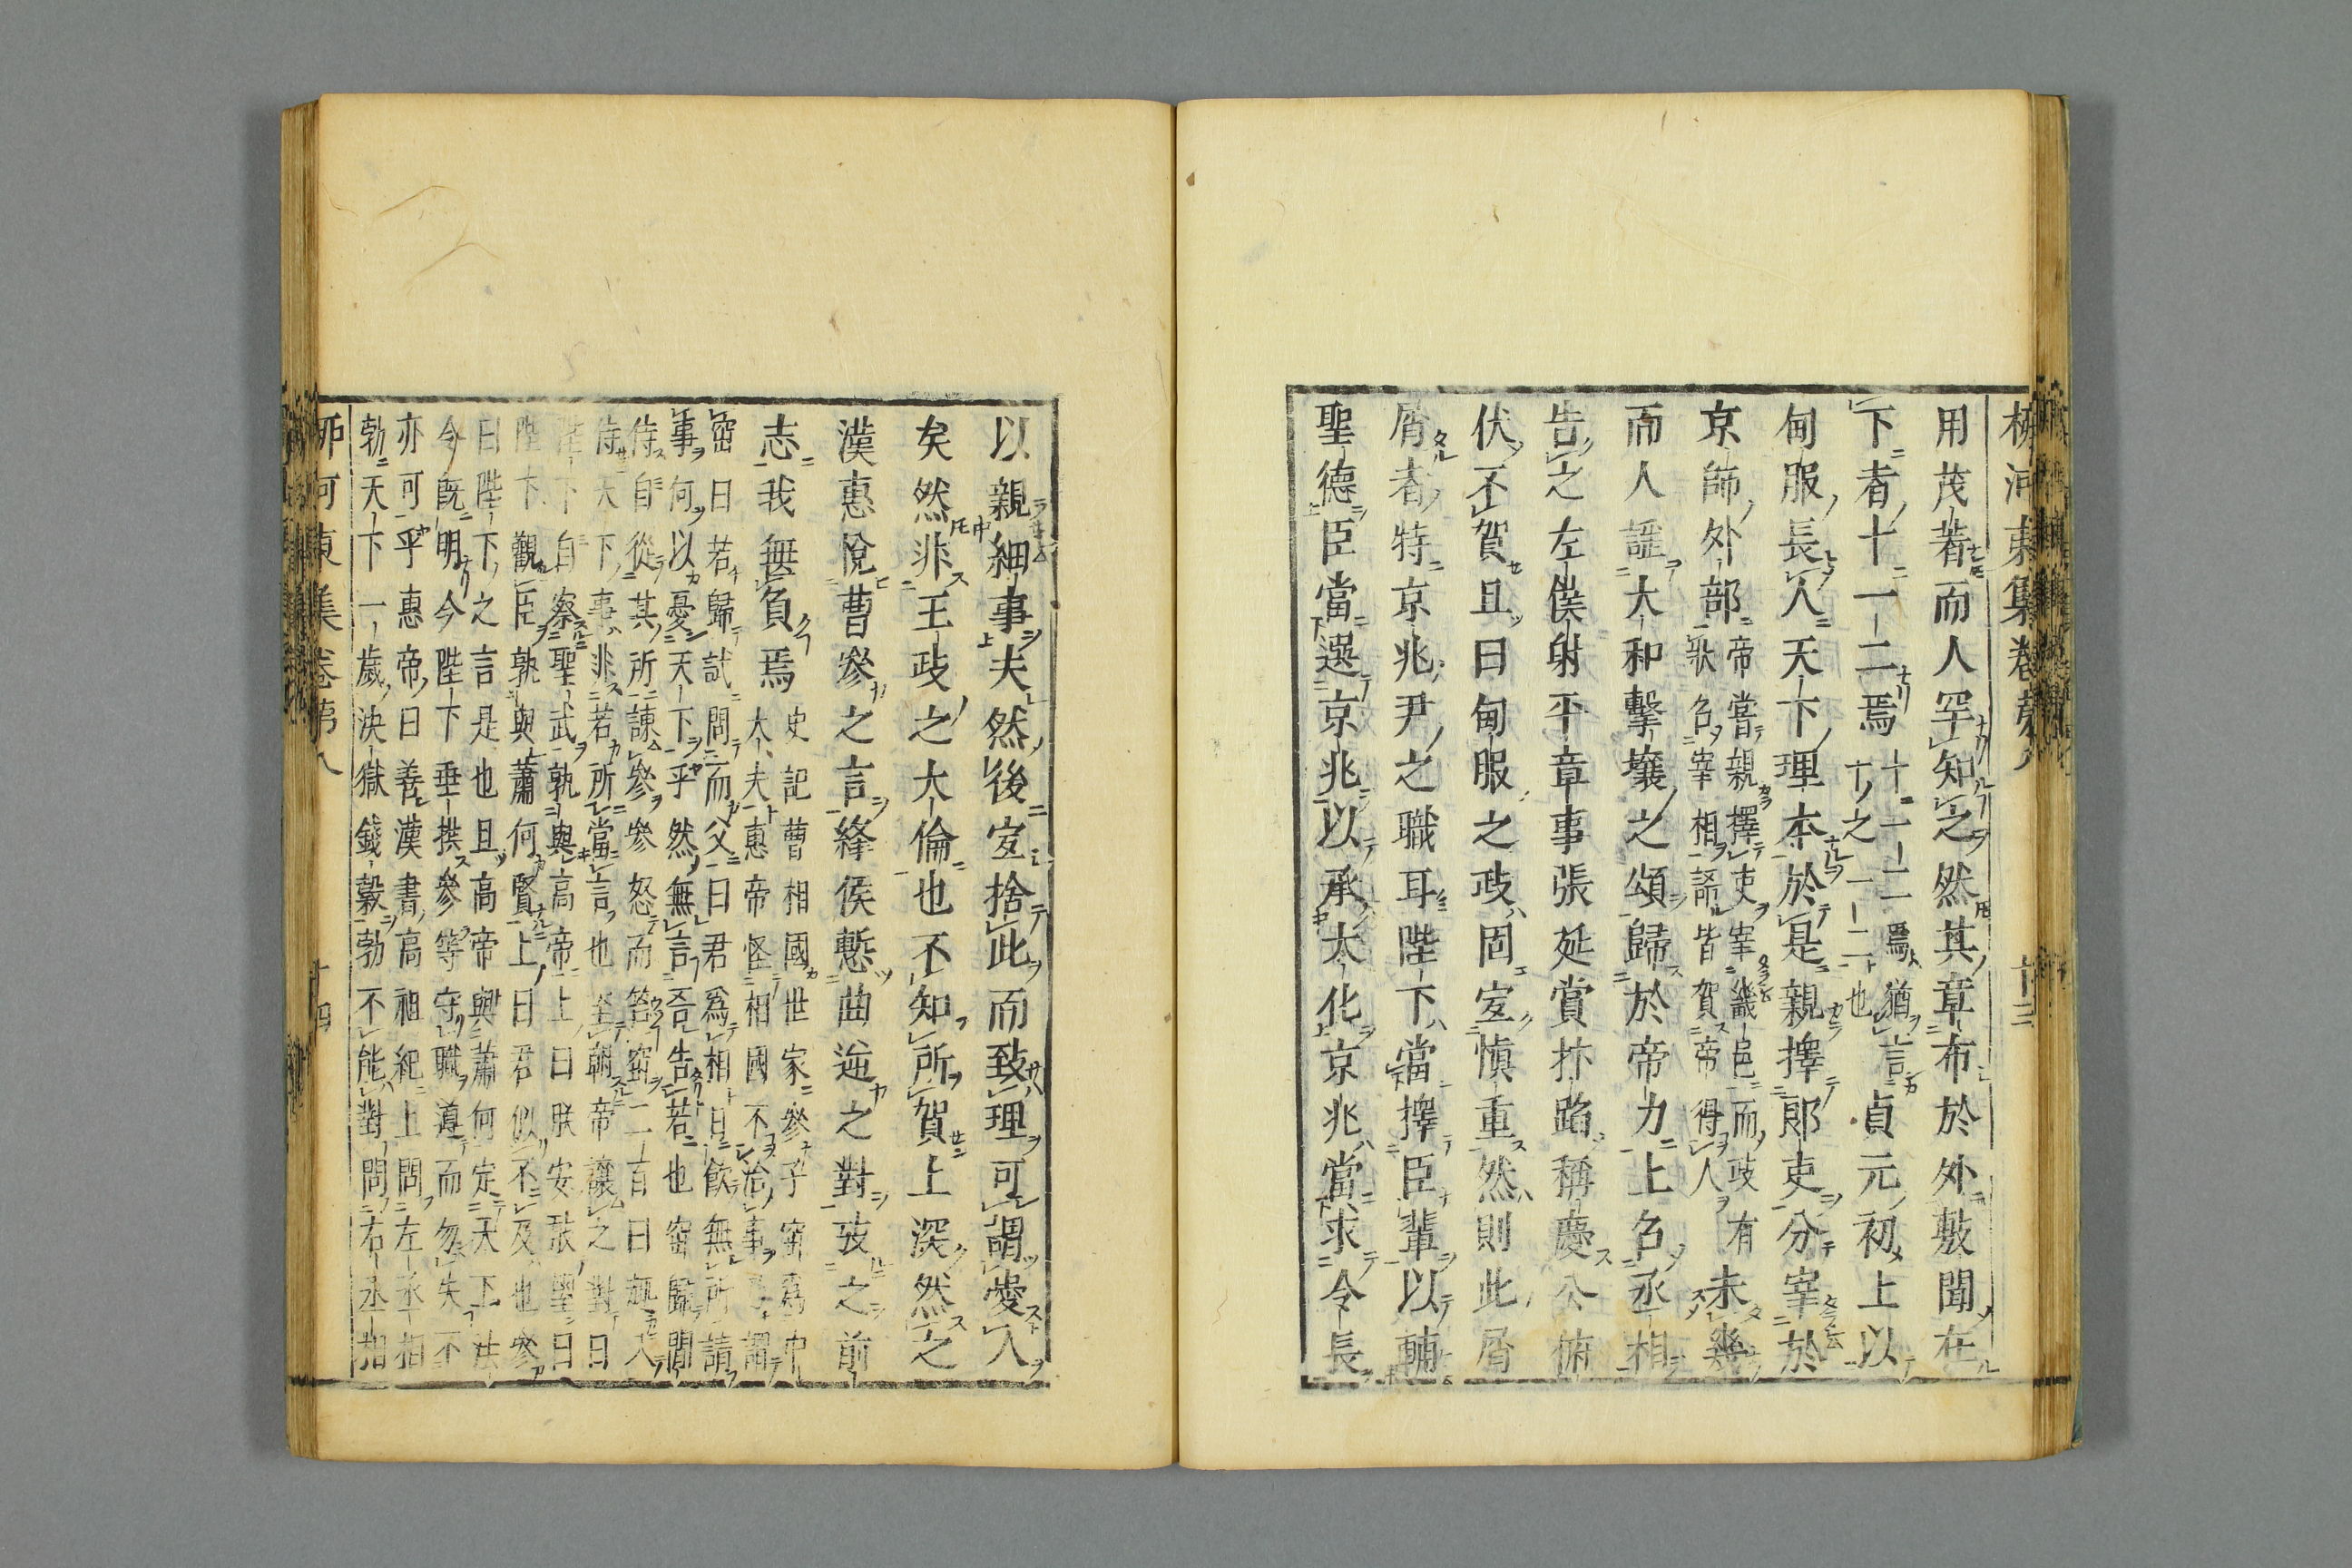 柳河東集卷第八 十三
用茂著而人罕知之然其章布於外敷聞在
下者十一二焉十一二焉猶言十之一二也貞元初上以
甸服長人天下理本於是親擇郎吏分宰於
京師外部帝嘗親擇吏宰畿邑而政有狀召宰相語皆賀帝得人未幾
而人謡大和擊壤之頌歸於帝力上召丞相
告之左僕射平章事張延賞抃蹈稱慶公俯
伏不賀且曰甸服之政固宜慎重然則此屑
屑者特京兆尹之職耳陛下當擇臣輩以輔
聖德臣當選京兆以承大化京兆當求令長
以親細事夫然後宜捨此而致理可謂愛人
矣然非王政之大倫也不知所賀上深然之
漢惠悅曹參之言絳侯慙曲逆之對攷之前
志我無負焉史記曹相國世家參子窋為中大夫惠帝怪相國不治事謂
窋曰若歸試問而父曰君為相日飲無所請
事何以憂天下乎然無言吾告若也窋歸間
侍自從其所諫參參怒而笞窋二百曰趣入
侍天下事非若所當言也至朝帝讓之對曰
陛下自察聖武孰與高帝上曰朕安敢望曰
陛下觀臣孰與蕭何賢上曰君似不及也參
曰陛下之言是也且高帝與蕭何定天下法
令既明今陛下垂拱參等守職遵而勿失不
亦可乎惠帝曰善漢書高祖紀上問左丞相
勃天下一歲決獄錢穀勃不能對問右丞相
柳河東集卷第八 十四